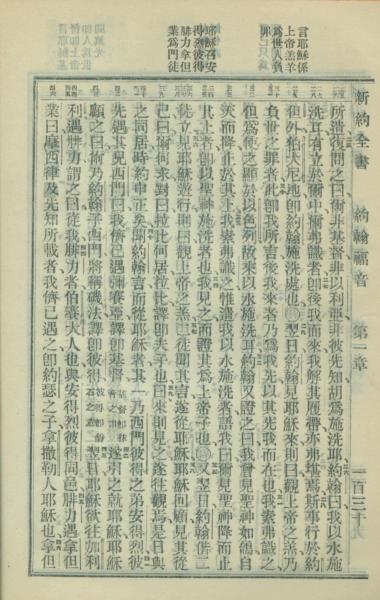 新約全書 約翰福音 第一章 一百三十
言耶穌係
上帝羔羊
為世人負
罪
耶穌召安
得烈彼得
腓力拿但
業為門徒
所遣復問之曰爾非基督非以利亞非彼先知胡為施洗耶約翰曰我以水施
洗耳有立於爾中爾弗識者即後我而來我解其履帶亦弗堪焉斯事行於約
但外伯大尼地即約翰施洗處也○翌日約翰見耶穌來則曰觀上帝之羔乃
負世之罪者此即我所言後我來者乃為我先以其先我而在也我素弗識之
但為使之顯於以色列故來以水施洗耳約翰又證之曰我曾見聖神如鴿自
天而降止於其上我素弗識之惟遣我以水施洗者語我曰爾見聖神降而止
其上者即以聖神施洗者也我見之而證其為上帝子也○又翌日約翰偕二
徒立見耶穌遊行則曰觀上帝之羔二徒聞其言遂從耶穌耶穌回顧見其從
己曰爾何求來對曰拉比何居拉比譯即夫子也曰來則見之遂往觀焉是日與
之同居時約申正矣聞約翰言而從耶穌者其一乃西門彼得之弟安得烈彼
先遇其兄西門曰我儕已遇彌賽亞譯即基督遂引之就耶穌耶穌
顧之曰爾乃約翰子西門將稱磯法譯即彼得翌日耶穌欲往加利
利遇腓力謂之曰從我腓力者伯賽大人也與安得烈彼得同邑腓力遇拿但
業曰摩西律及先知所載者我儕已遇之即約瑟之子拿撒勒人耶穌也拿但